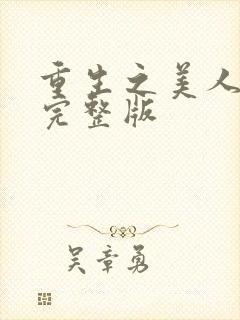 重生之美人
完整版
吴章勇